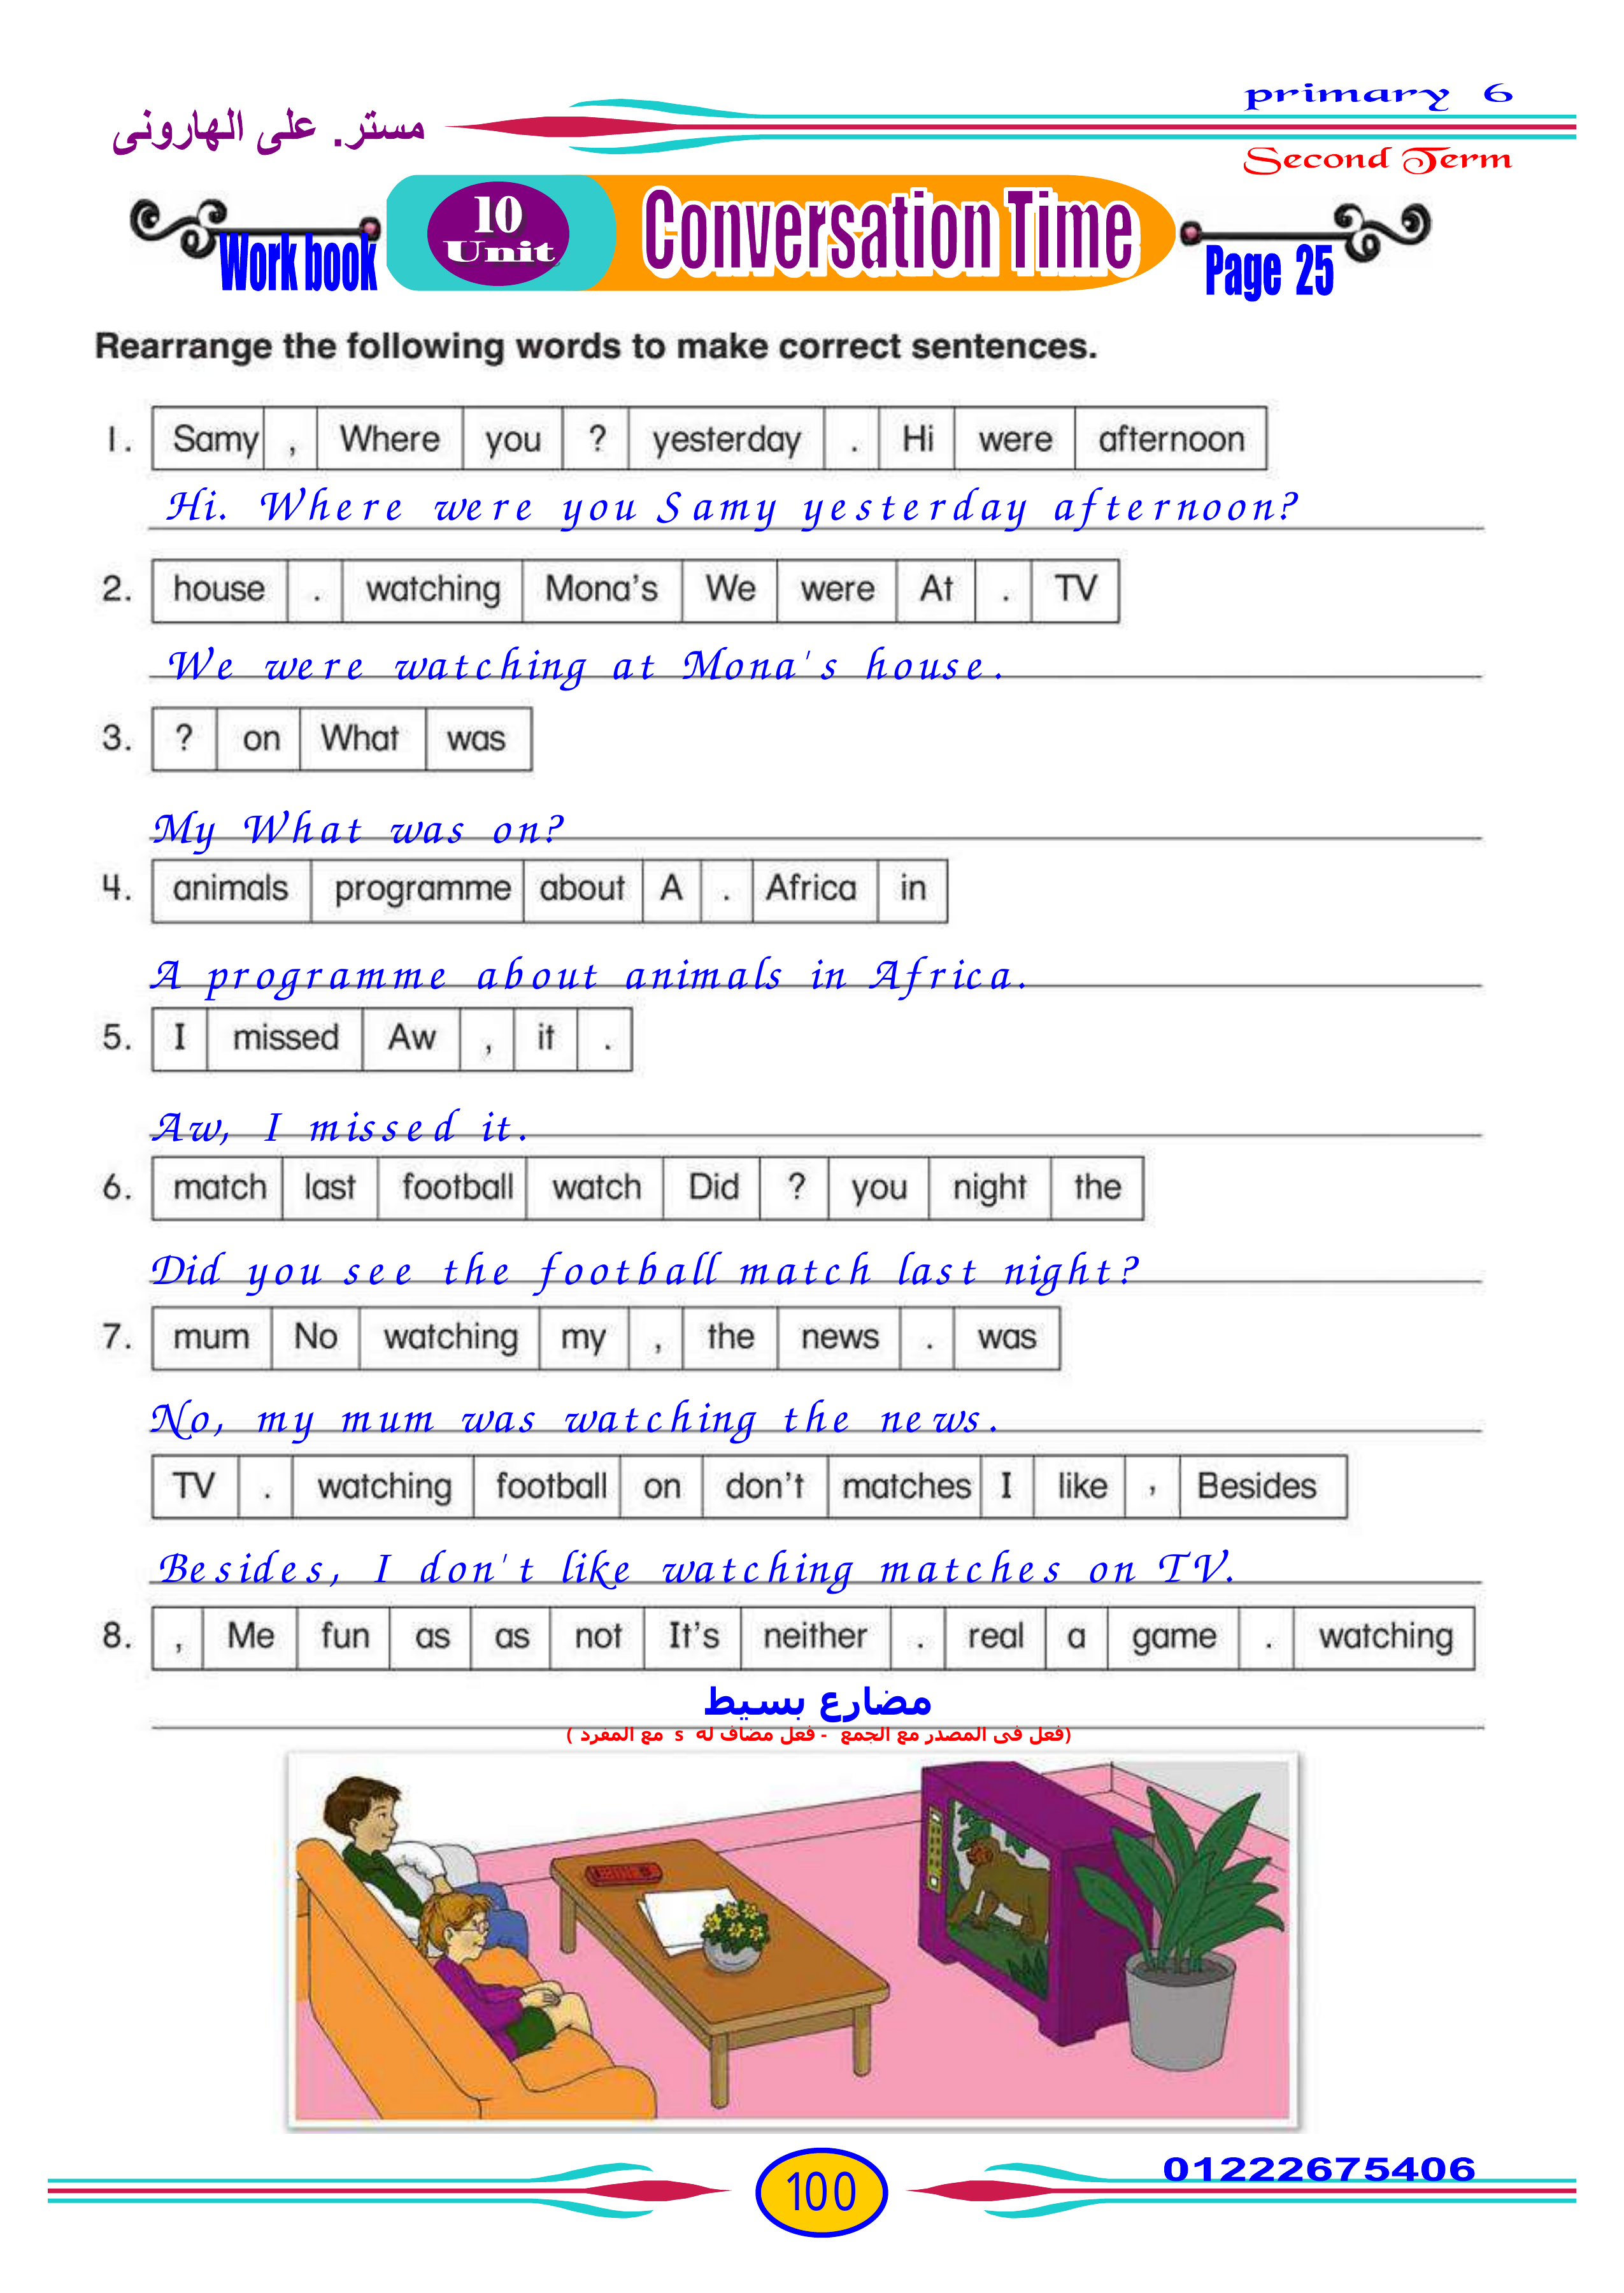 primary 6
مستر. على الهارونى
Second Term
Work book
10
Unit
Conversation Time
Page 25
Rearrange the following words to make correct sentences.
1. Samy , Where you ? yesterday . Hi were afternoon
Hi. Where were you Samy yesterday afternoon?
2. house . watching Mona's We were At . TV
We were watching at Mona's house.
3. ? on What was
My What was on?
4. animals programme about A . Africa in
A programme about animals in Africa.
5. I missed Aw , it .
Aw, I missed it.
6. match last football watch Did ? you night the
Did you see the football match last night?
7. mum No watching my , the news . was
No, my mum was watching the news.
TV . watching football on don't matches I like , Besides
Besides, I don't like watching matches on TV.
8. , Me fun as as not It's neither . real a game . watching
مضارع بسيط
(فعل فى المصدر مع الجمع - فعل مضاف له s مع المفرد )
01222675406
100